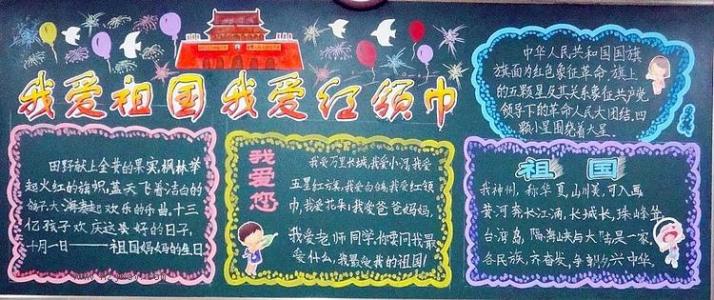 我爱祖国 我爱红领巾
中华人民共和国国旗
旗面为红色象征革命.旗上
的五颗星及其关系象征共产党
领导下的革命人民大团结.四
颗小星围绕着大星.
田野献上金黄的果实,枫林举
起火红的旗帜,蓝天飞着洁白的
鸽子,大海奏起欢乐的乐曲,十三
亿孩子欢庆这美好的日子,
十月一日——祖国妈妈的生日
我爱您
我爱万里长城,我爱小河,我爱
五星红旗,我爱白鸽,我爱红领
巾,我爱花朵,我爱爸爸妈妈,
我爱老师同学,你要问我最
爱什么,我最爱我的祖国!
祖国
我神州,称华夏,山川美,可入画
黄河奔,长江涌,长城长,珠峰耸
台湾岛,隔海峡与大陆是一家,
各民族,齐奋发,争朝夕,兴中华.